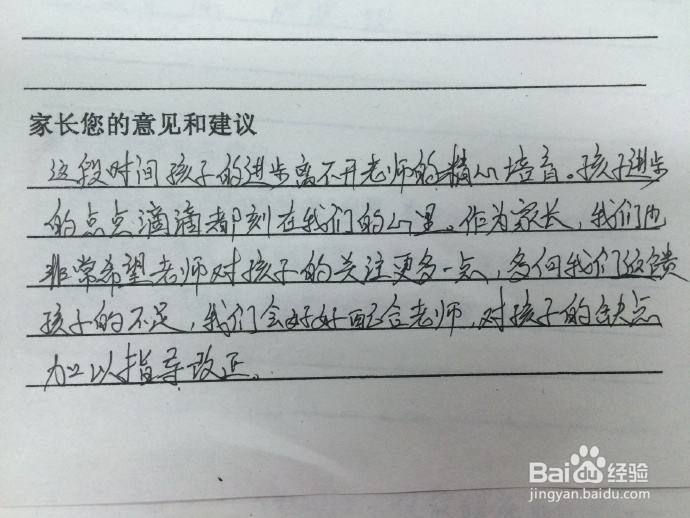 家长您的意见和建议
这段时间孩子的进步离不开老师的精心培育。孩子进步
的点点滴滴都刻在我们的心里。作为家长，我们也
非常希望老师对孩子的关注更多一点，多向我们反馈
孩子的不足，我们会好好配合老师，对孩子的缺点
加以指导改正。
Baidu经验
jingyan.baidu.com